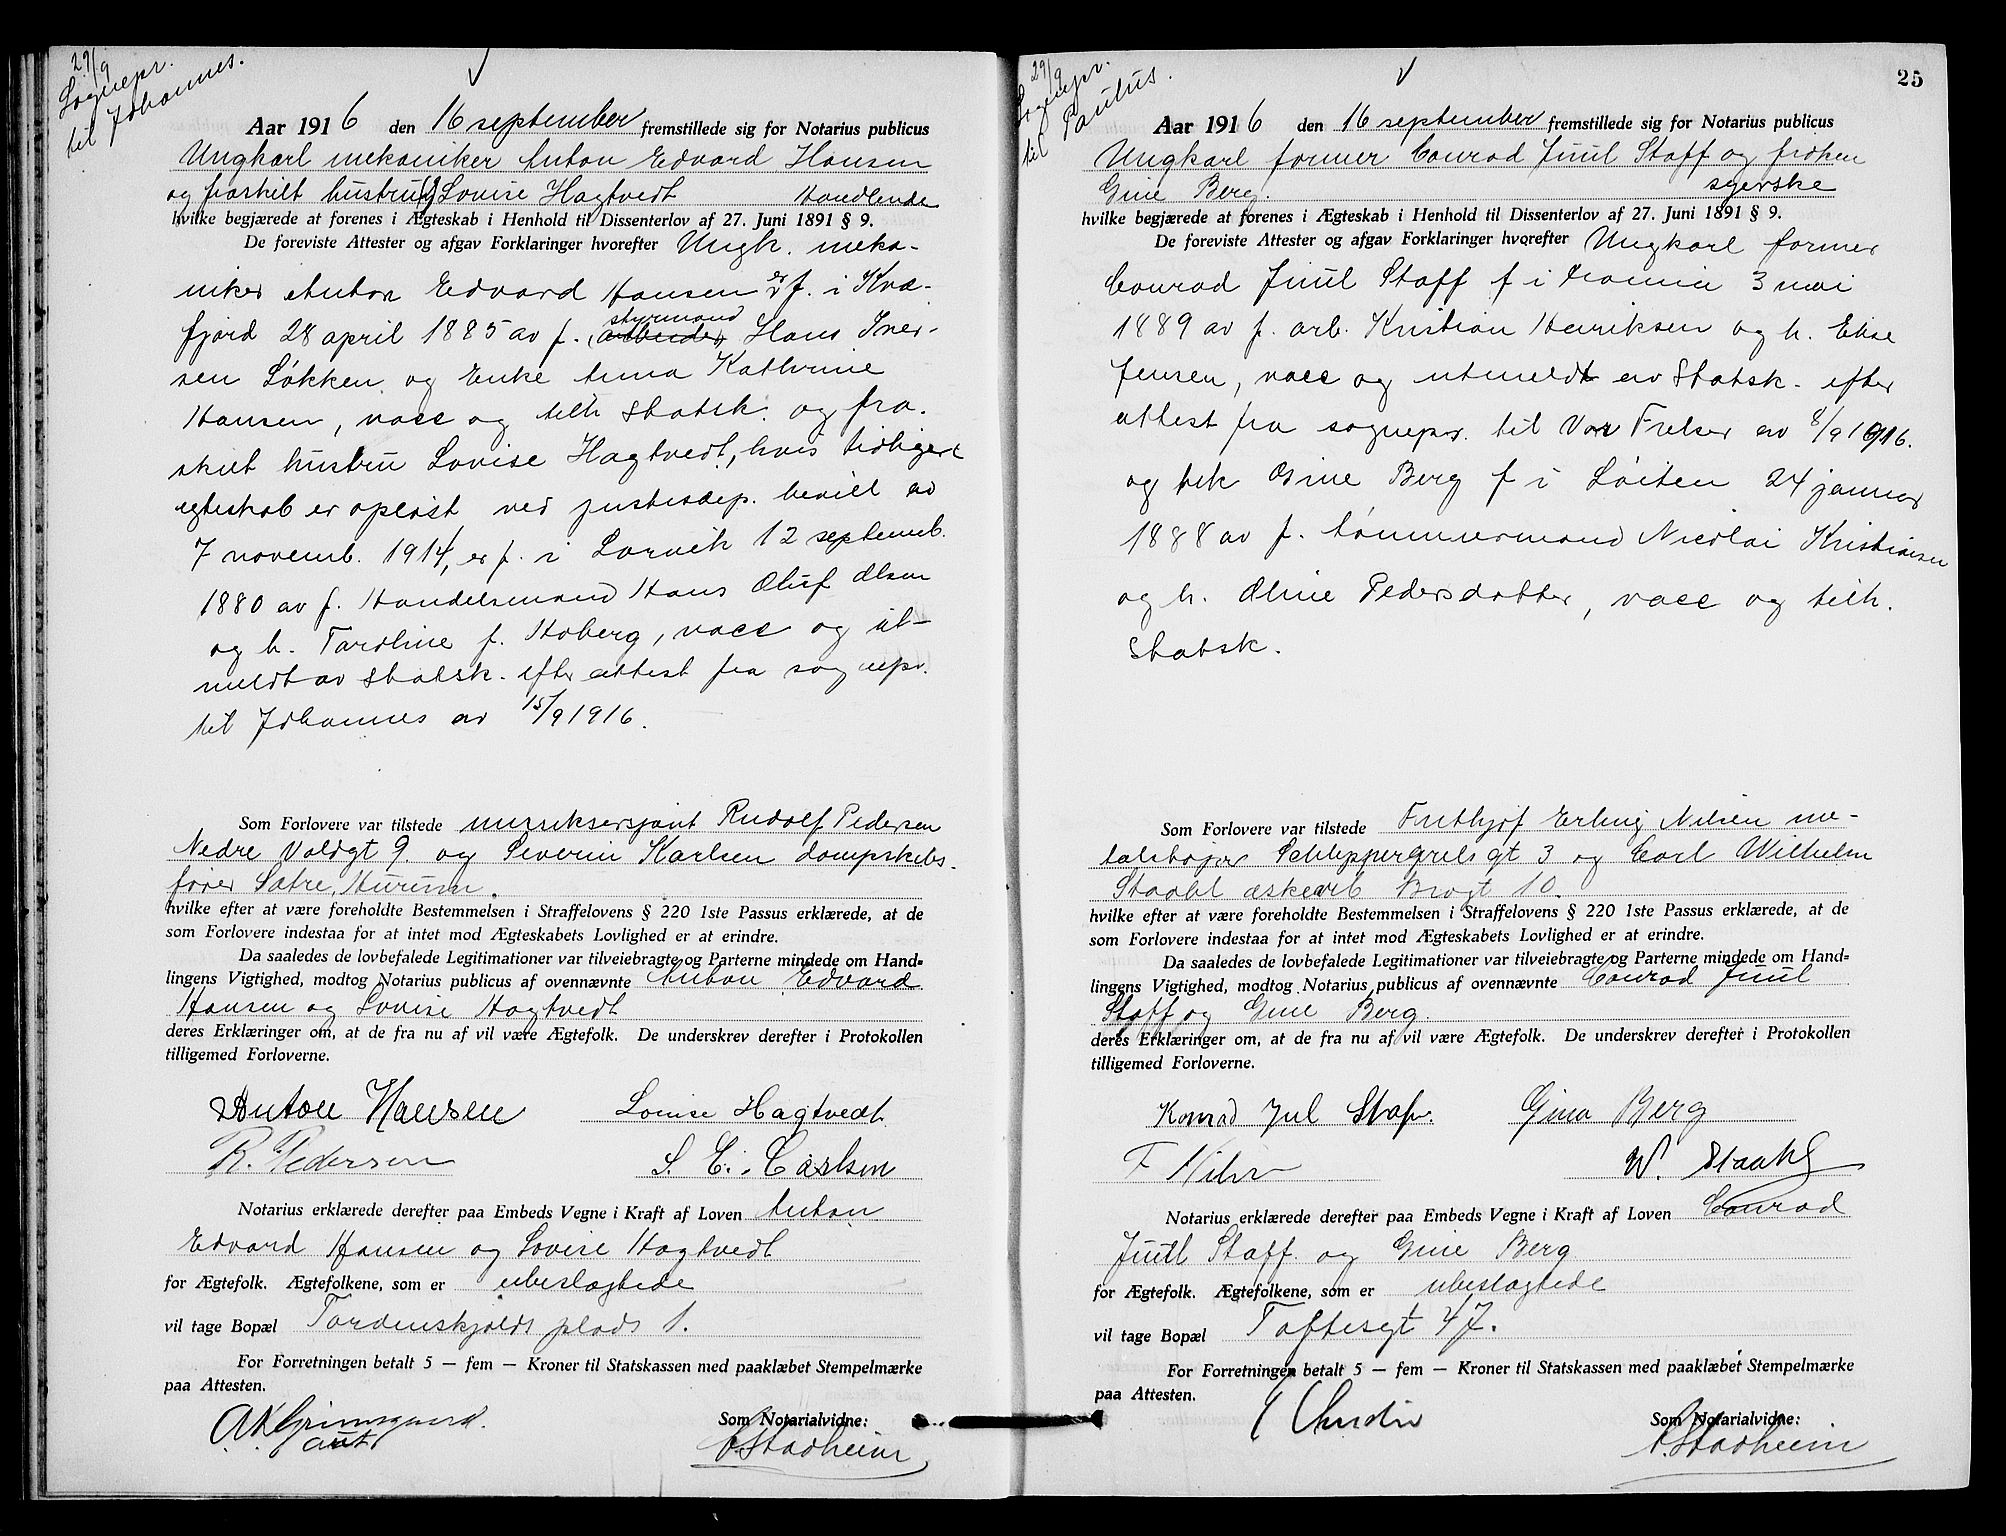 29/9
Sognepr.
til Johannes.
Aar 1916 den 16 september fremstillede sig for Notarius publicus
Ungkarl mekaniker Anton Edvard Hansen
og fraskilt hustru Lovise Hagtvedt Handlende
hvilke begjærede at forenes i Ægteskab i Henhold til Dissenterlov af 27. Juni 1891 § 9.
De foreviste Attester og afgav Forklaringer hvorefter Ungk. meka-
niker Anton Edvard Hansen er f. i Kvæ-
fjord 28 april 1885 av f. styrmand Hans Iver-
sen Løkken og Enke Anna Kathrine
Hansen, vacc og tilh statsk. og fra-
skilt hustru Lovise Hagtvedt, hvis tidligere
egteskab er opløst ved justisdep. bevill av
7 novemb. 1914, er f. i Larvik 12 septemb.
1880 av f. Handelsmand Hans Oluf Olsen
og h. Taroline f. Hoberg, vacc og ut-
meldt av statsk. efter attest fra sognepr.
til Johannes av 15/9 1916.
Som Forlovere var tilstede musiksersjant Rudolf Pedersen
Nedre Voldgt 9. og Severin Karlsen dampskibs-
fører Sætre, Hurum.
hvilke efter at være foreholdte Bestemmelsen i Straffelovens § 220 1ste Passus erklærede, at de
som Forlovere indestaa for at intet mod Ægteskabets Lovlighed er at erindre.
Da saaledes de lovbefalede Legitimationer var tilveiebragte og Parterne mindede om Hand-
lingens Vigtighed, modtog Notarius publicus af ovennævnte Anton Edvard
Hansen og Lovise Hagtvedt
deres Erklæringer om, at de fra nu af vil være Ægtefolk. De underskrev derefter i Protokollen
tilligemed Forloverne.
Anton Hansen Louise Hagtvedt
R. Pedersen S. E. Carlsen
Notarius erklærede derefter paa Embeds Vegne i Kraft af Loven Anton
Edvard Hansen og Lovise Hagtvedt
for Ægtefolk. Ægtefolkene, som er ubeslægtede
vil tage Bopæl Tordenskjolds plads 1.
For Forretningen betalt 5 — fem — Kroner til Statskassen med paaklæbet Stempelmærke
paa Attesten.
Som Notarialvidne:
A. Grimsgaard.
aut
Stadheim
25
29/9
Sognepr.
til Paulus.
Aar 1916 den 16 september fremstillede sig for Notarius publicus
Ungkarl former Conrad Juul Staff og frøken
Gine Berg. syerske
hvilke begjærede at forenes i Ægteskab i Henhold til Dissenterlov af 27. Juni 1891 § 9.
De foreviste Attester og afgav Forklaringer hvorefter Ungkarl former
Conrad Juul Staff f i Kra­nia 3 mai
1889 av f. arb. Kristian Henriksen og h. Elise
Jensen, vacc og utmeldt av Statsk. efter
attest fra sognepr. til Vor Frelser av 8/9 1916.
og frk Gine Berg f i Løiten 24 januar
1888 av f. tømmermand Nicolai Kristiansen
og h. Oline Pedersdatter, vacc og tilh.
Statsk.
Som Forlovere var tilstede Frithjof Erling Nilsen me-
talsliper Schleppergrels gt 3 og Carl Wilhelm
Staahl æskearb Brogt 10.
hvilke efter at være foreholdte Bestemmelsen i Straffelovens § 220 1ste Passus erklærede, at de
som Forlovere indestaa for at intet mod Ægteskabets Lovlighed er at erindre.
Da saaledes de lovbefalede Legitimationer var tilveiebragte og Parterne mindede om Hand-
lingens Vigtighed, modtog Notarius publicus af ovennævnte Conrad Juul
Staff og Gine Berg.
deres Erklæringer om, at de fra nu af vil være Ægtefolk. De underskrev derefter i Protokollen
tilligemed Forloverne.
Konrad Jul Staff. Gina Berg
F Nilsen W. Staahl
Notarius erklærede derefter paa Embeds Vegne i Kraft af Loven Conrad
Juul Staff. og Gine Berg
for Ægtefolk. Ægtefolkene, som er ubeslægtede
vil tage Bopæl Toftesgt 47.
For Forretningen betalt 5 — fem — Kroner til Statskassen med paaklæbet Stempelmærke
paa Attesten.
Som Notarialvidne:
Stadheim